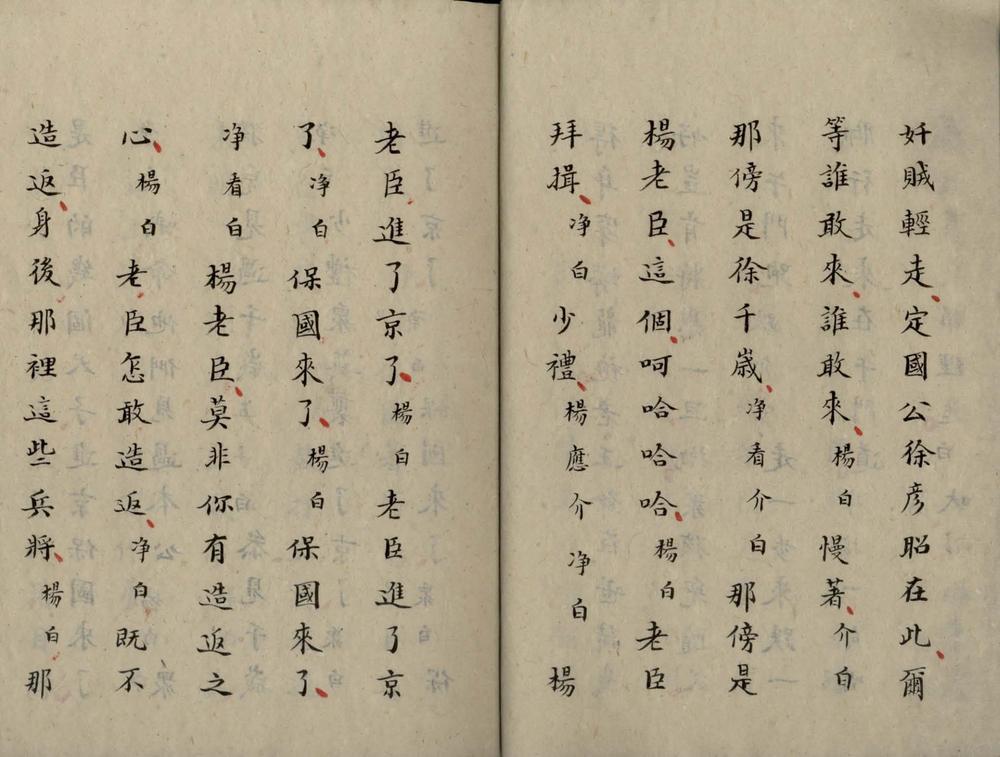 奸賊輕走、定國公徐彥昭在此、爾
等誰敢來、誰敢來、楊白慢著、介白
那傍是徐千歲、净看介白那傍是
楊老臣、這個、呵哈哈哈、楊白老臣
拜揖、净白少禮、楊應介净白楊
老臣進了京了、楊白老臣進了京
了、净白保國來了、楊白保國來了、
净看白楊老臣、莫非你有造返之
心、楊白老臣怎敢造返、净白既不
造返、身後那裡這些兵將、楊白那